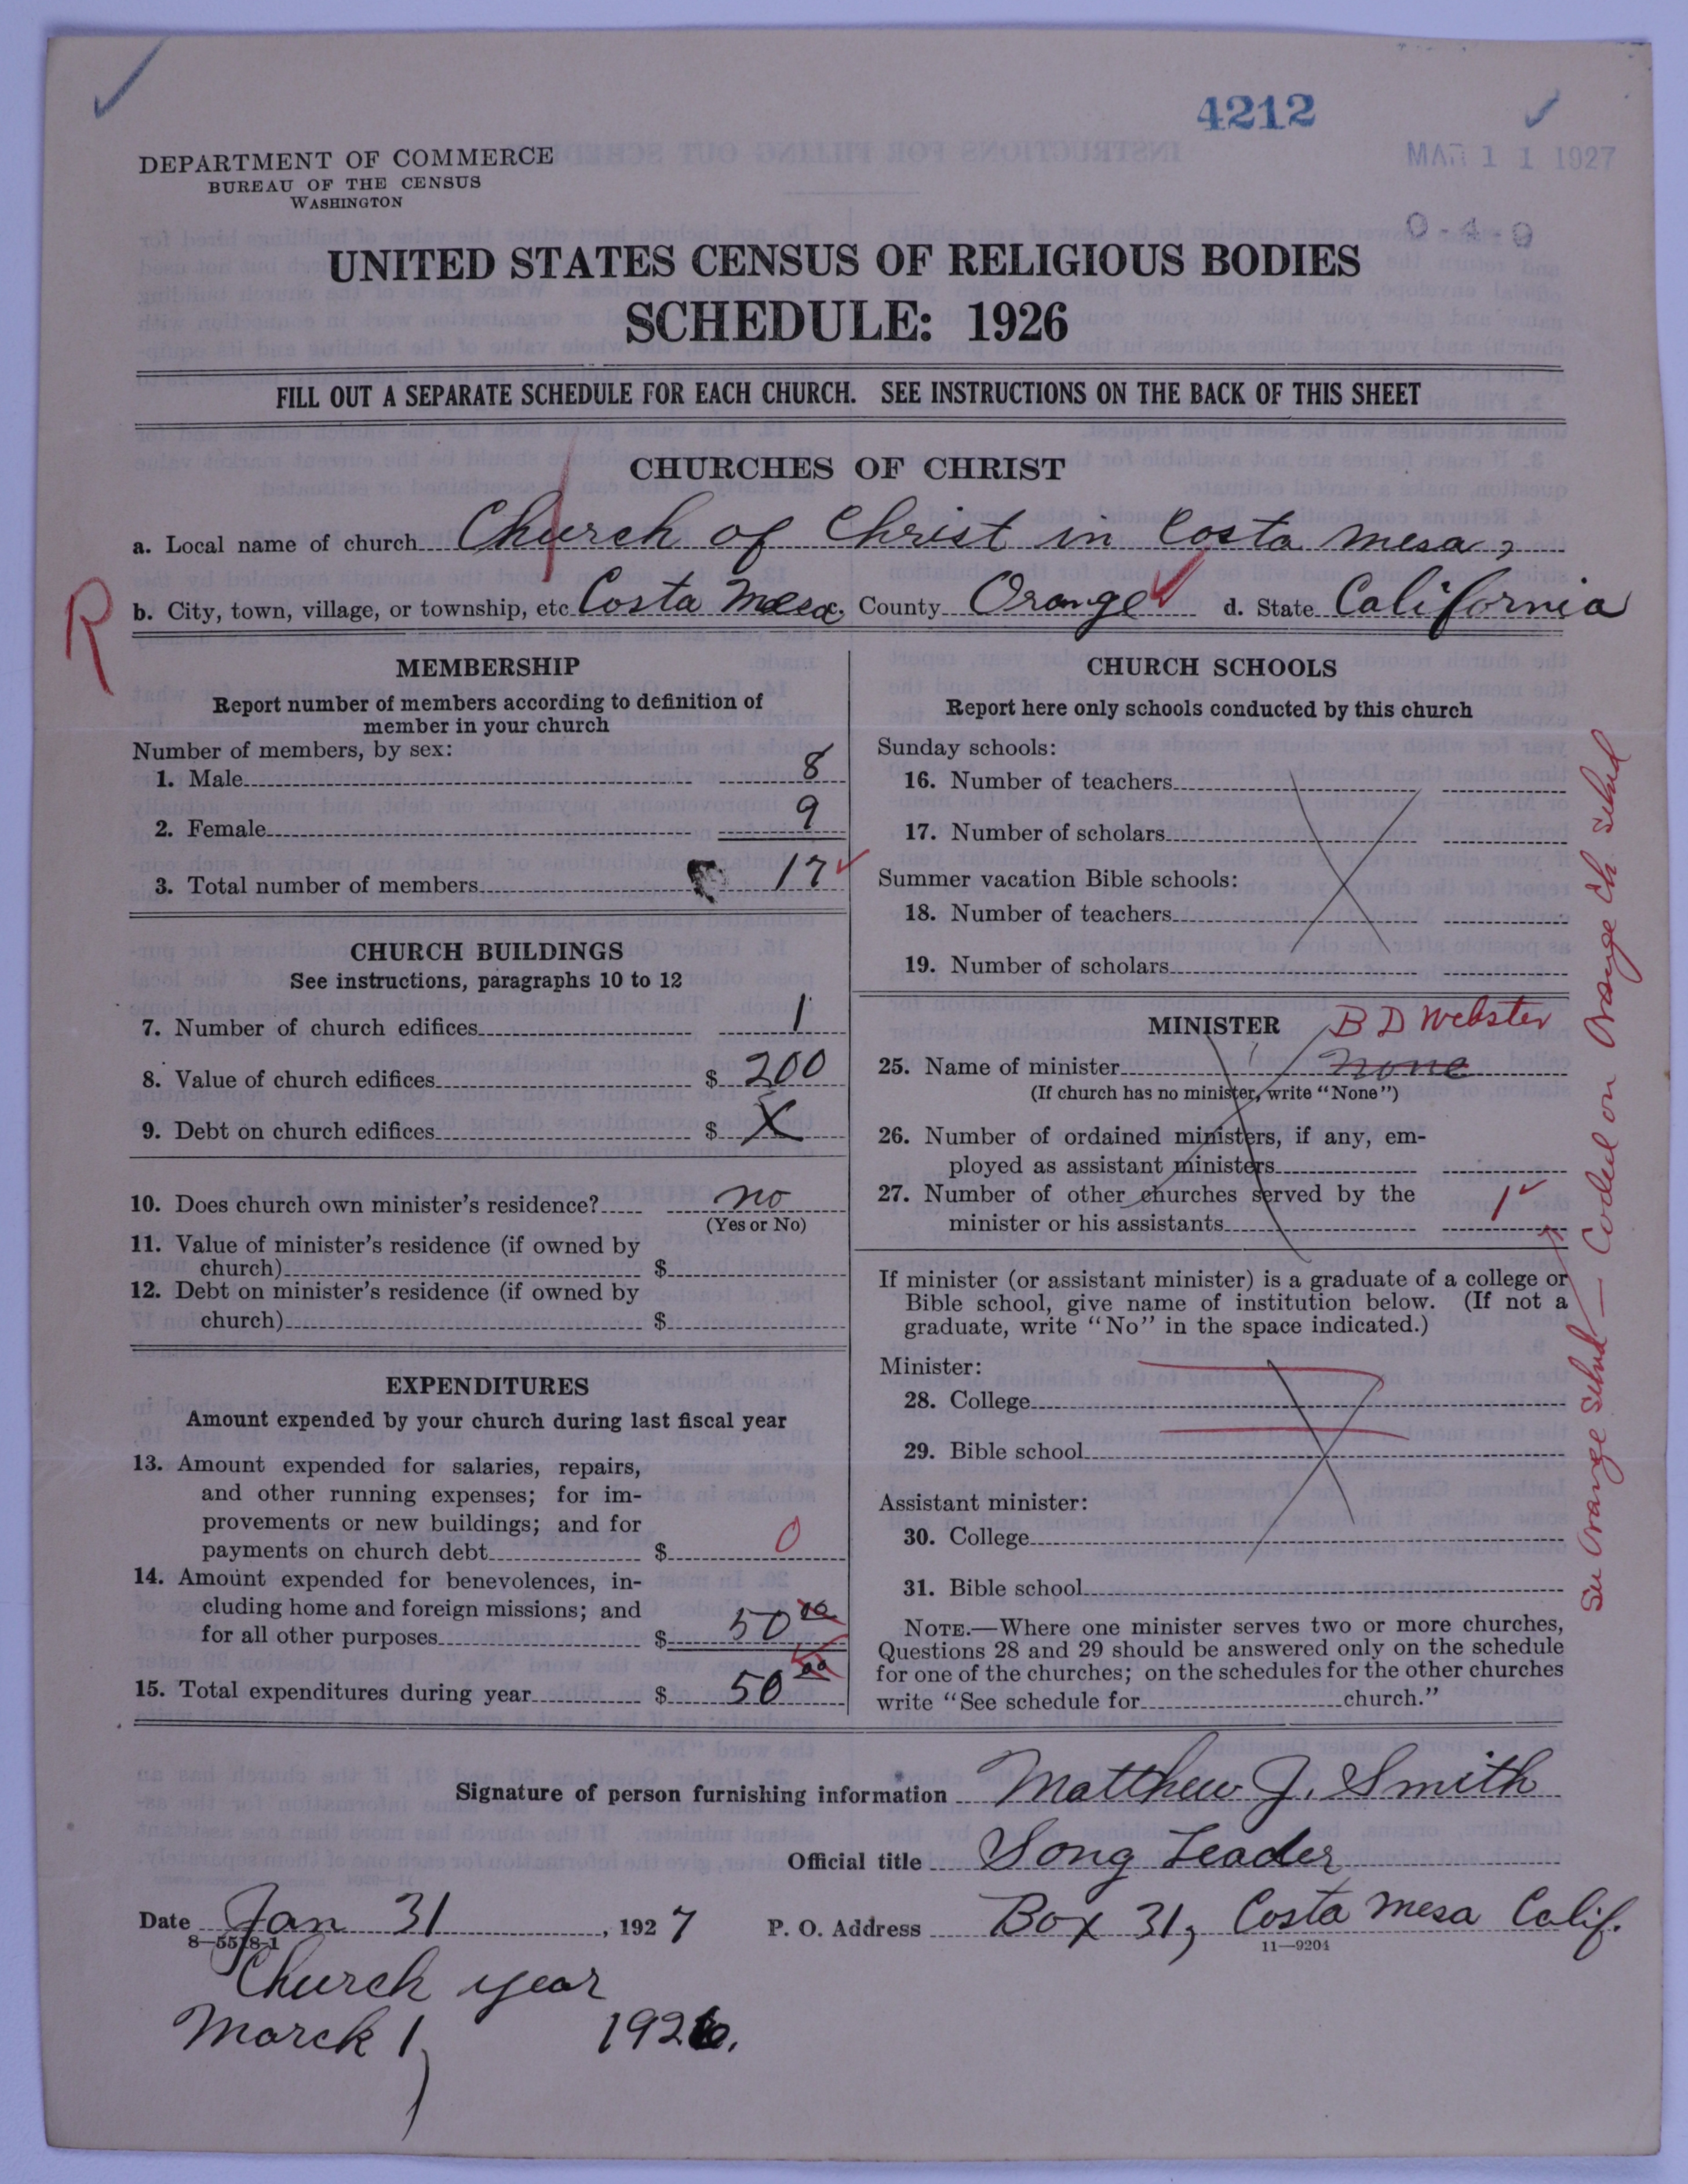 4212
MAR 11 1927
0-4-9
DEPARTMENT OF COMMERCE
BUREAU OF THE CENSUS
WASHINGTON
UNITED STATES CENSUS OF RELIGIOUS BODIES
SCHEDULE: 1926
FILL OUT A SEPARATE SCHEDULE FOR EACH CHURCH. SEE INSTRUCTIONS ON THE BACK OF THIS SHEET
CHURCHES OF CHRIST
a. Local name of church Church of Christ in Costa Mesa,
R
b. City, town, village, or township, etc. Costa Mesa c. County Orange d. State California
MEMBERSHIP
Report number of members according to definition of
member in your church
Number of members, by sex:
1. Male 8
2. Female 9
3. Total number of members 17
CHURCH BUILDINGS
See instructions, paragraphs 10 to 12
7. Number of church edifices 1
8. Value of church edifices $ 200
9. Debt on church edifices $ X
10. Does church own minister's residence? no
(Yes or No)
11. Value of minister's residence (if owned by
church) $
12. Debt on minister's residence (if owned by
church) $
EXPENDITURES
Amount expended by your church during last fiscal year
13. Amount expended for salaries, repairs,
and other running expenses; for im-
provements or new buildings; and for
payments on church debt $ 0
14. Amount expended for benevolences, in-
cluding home and foreign missions; and
for all other purposes $ 50 00
15. Total expenditures during year $ 50 00
CHURCH SCHOOLS
Report here only schools conducted by this church
Sunday schools:
16. Number of teachers
17. Number of scholars
Summer vacation Bible schools:
18. Number of teachers
19. Number of scholars
MINISTER B D Webster
25. Name of minister none
(If church has no minister, write "None")
26. Number of ordained ministers, if any, em-
ployed as assistant ministers
27. Number of other churches served by the
minister or his assistants 1
If minister (or assistant minister) is a graduate of a college or
Bible school, give name of institution below. (If not a
graduate, write "No" in the space indicated.)
Minister:
28. College
29. Bible school
Assistant minister:
30. College
31. Bible school
NOTE.—Where one minister serves two or more churches,
Questions 28 and 29 should be answered only on the schedule
for one of the churches; on the schedules for the other churches
write "See schedule for church."
See Orange Schd — Coded on Orange Ch. Schd
Signature of person furnishing information Matthew J. Smith
Official title Song Leader
Date Jan 31, 1927 P. O. Address Box 31, Costa Mesa Calif.
8—5518-1
11—9204
Church year
March 1, 1926.